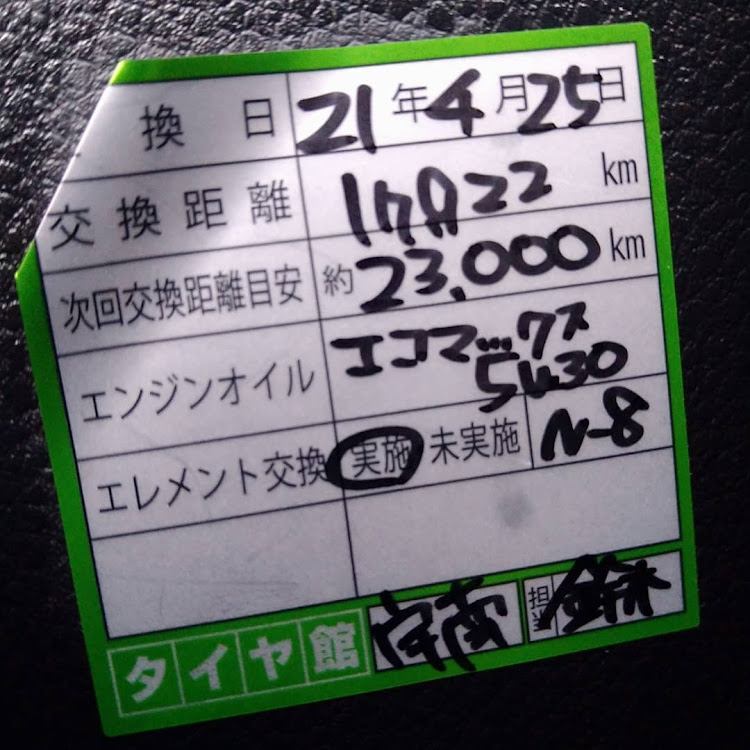 換日 21年4月25日
交換距離 17822 km
次回交換距離目安 約23,000 km
エンジンオイル エコマックス
5W30
エレメント交換 実施 未実施 N-8
タイヤ館 宇南 担当 鈴木